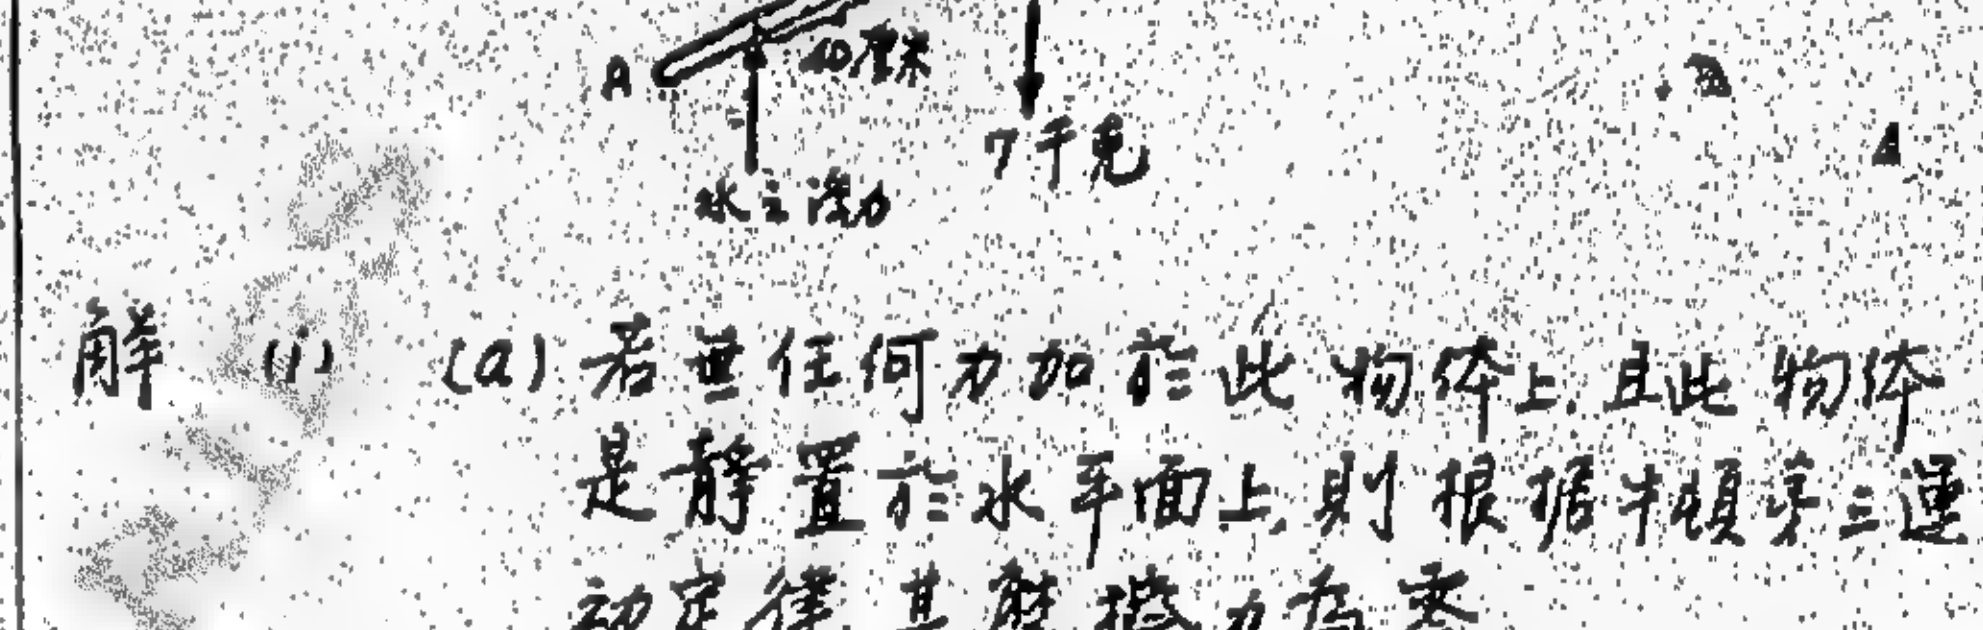 A
40厘米
7千克
水之浮力
A
解 (i) (a) 若無任何力加於此物体上,且此物体
是靜置於水平面上,則根据牛頓第三運
动定律,其摩擦力為零